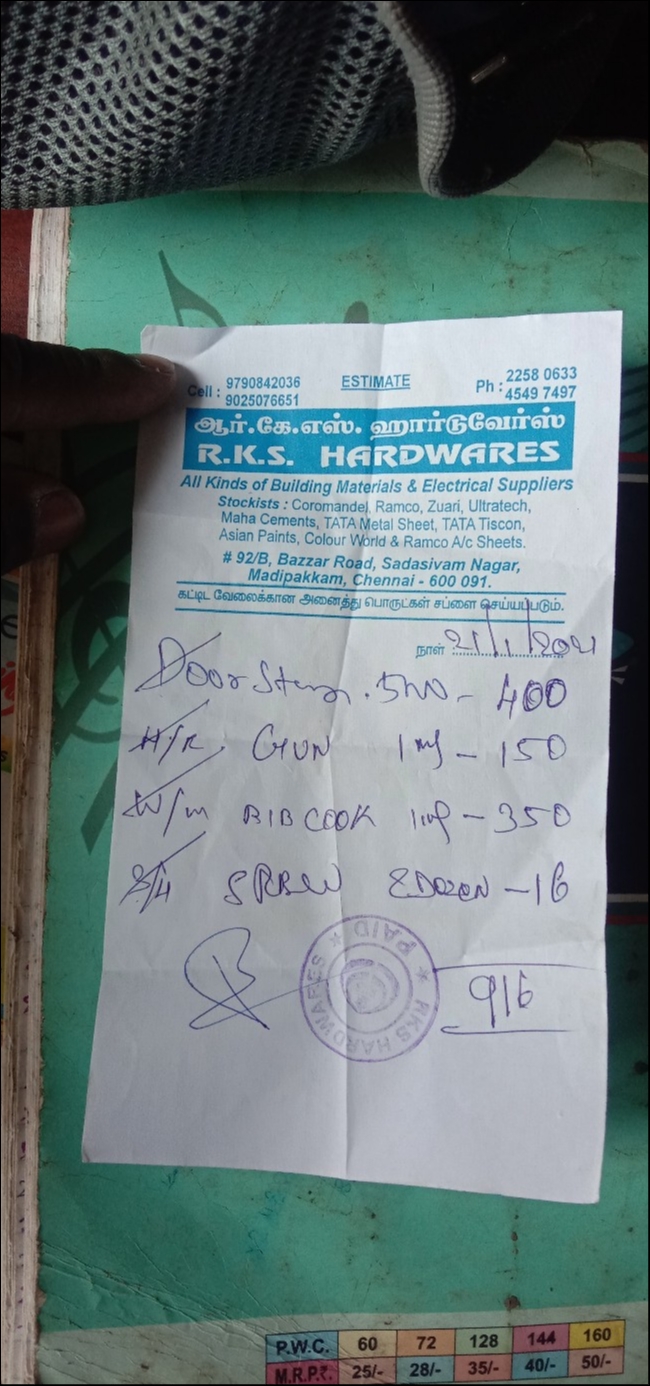 Cell : 9790842036
9025076651
ESTIMATE
Ph : 2258 0633
4549 7497
ஆர்.கே.எஸ். ஹார்டுவேர்ஸ்
R.K.S. HARDWARES
All Kinds of Building Materials & Electrical Suppliers
Stockists : Coromandel, Ramco, Zuari, Ultratech,
Maha Cements, TATA Metal Sheet, TATA Tiscon,
Asian Paints, Colour World & Ramco A/c Sheets.
# 92/B, Bazzar Road, Sadasivam Nagar,
Madipakkam, Chennai - 600 091.
கட்டிட வேலைக்கான அனைத்து பொருட்கள் சப்ளை செய்யப்படும்.
நாள் 21/1/2021
Door - 400
GUN - 150
W/m BIB COOK - 350
DOZEN - 16
916
RKS HARDWARES ★ PAID ★
P.W.C. 60 72 128 144 160
M.R.P.₹. 25/- 28/- 35/- 40/- 50/-